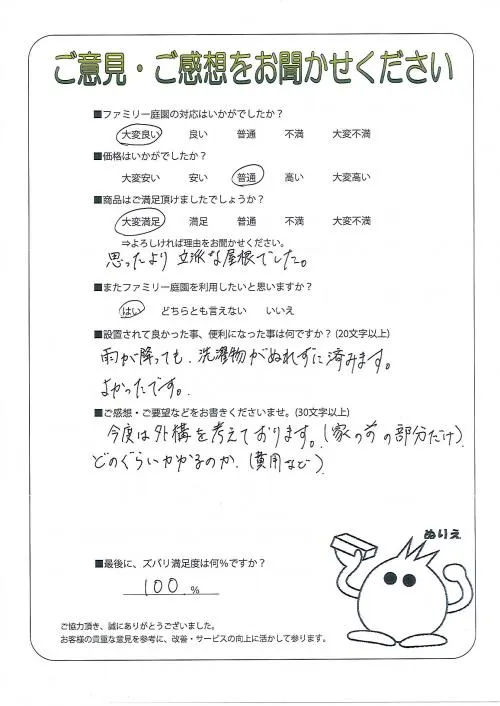 ご意見・ご感想をお聞かせください
■ファミリー庭園の対応はいかがでしたか？
大変良い 良い 普通 不満 大変不満
■価格はいかがでしたか？
大変安い 安い 普通 高い 大変高い
■商品はご満足頂けましたでしょうか？
大変満足 満足 普通 不満 大変不満
⇒よろしければ理由をお聞かせください。
思ったより立派な屋根でした。
■またファミリー庭園を利用したいと思いますか？
はい どちらとも言えない いいえ
■設置されて良かった事、便利になった事は何ですか？(20文字以上)
雨が降っても、洗濯物がぬれずに済みます。
よかったです。
■ご感想・ご要望などをお書きくださいませ。(30文字以上)
今度は外構を考えております。(家の前の部分だけ)
どのぐらいかかるのか.(費用など)
ぬりえ
■最後に、ズバリ満足度は何%ですか？
100 %
ご協力頂き、誠にありがとうございました。
お客様の貴重な意見を参考に、改善・サービスの向上に活かして参ります。